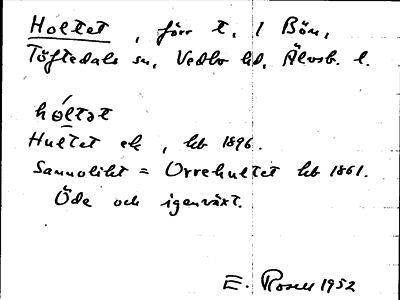 Holtet, förr t. 1 Bön,
Töftedals sn, Vedbo hd, Älvsb. l.
hóltet
Hultet ek, hb 1896.
Sannolikt = Orrehultet hb 1861.
Öde och igenväxt.
E. Rosell 1952